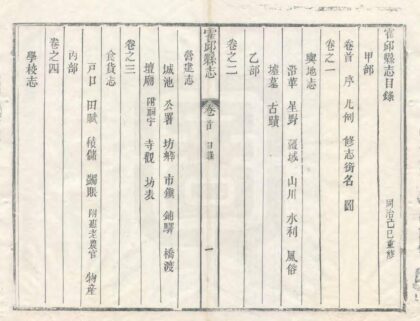 霍邱縣志目錄 同治己巳重修
甲部
卷首 序 凡例 修志銜名 圖
卷之一
輿地志
沿革 星野 疆域 山川 水利 風俗
墟墓 古蹟
乙部
卷之二
霍邱縣志 卷首 目錄 一
營建志
城池 公署 坊鄉 市鎮 鋪驛 橋渡
壇廟 附祠宇 寺觀 坊表
卷之三
食貨志
戶口 田賦 積儲 蠲賑 附耆老農官 物產
丙部
卷之四
學校志